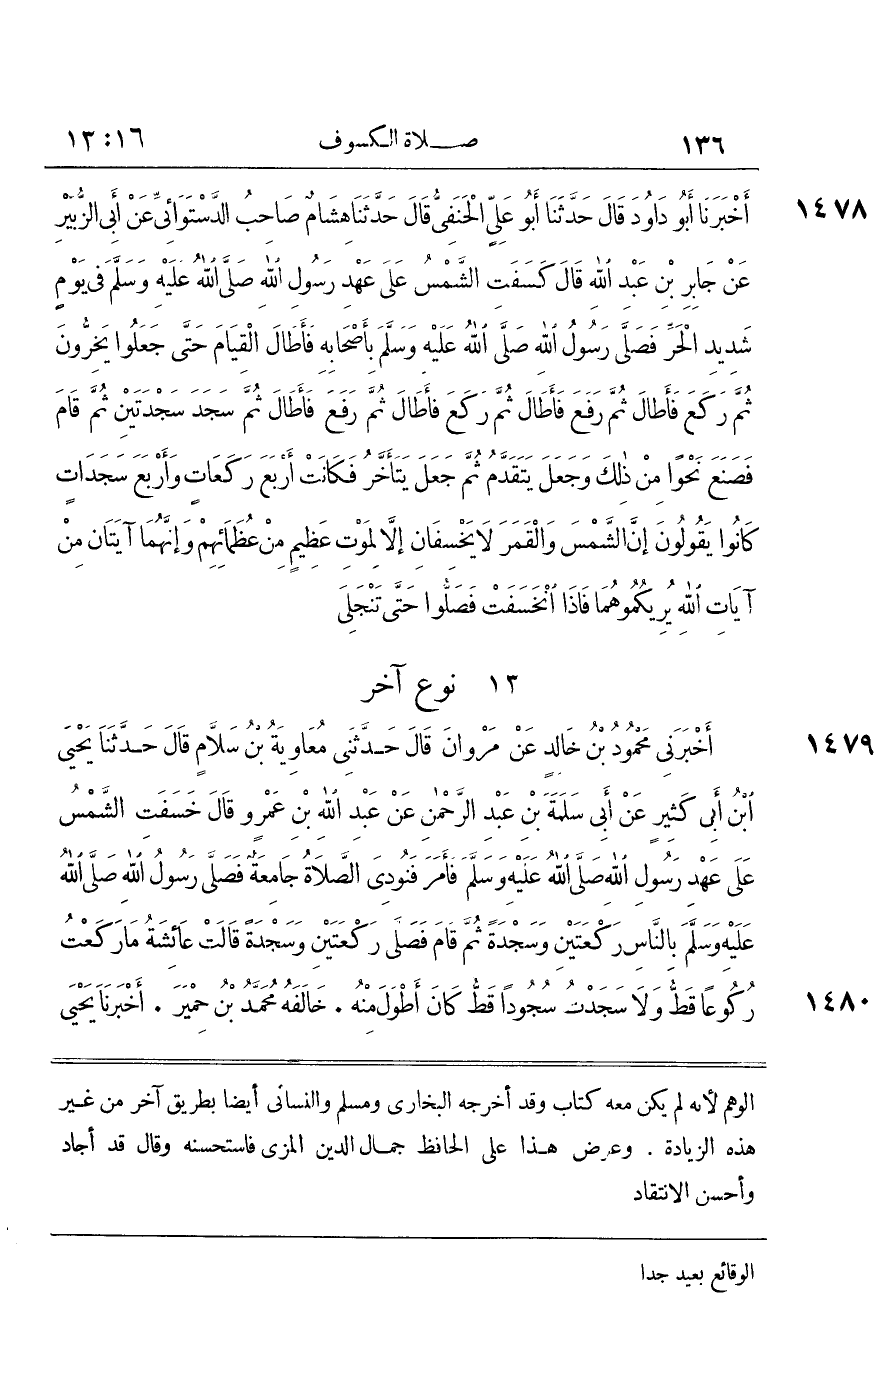 ١٣٦ صلاة الكسوف ١٦ : ١٣
١٤٧٨ أَخْبَرَنَا أَبُو دَاوُدَ قَالَ حَدَّثَنَا أَبُو عَلِيٍّ الْحَنَفِيُّ قَالَ حَدَّثَنَا هِشَامٌ صَاحِبُ الدَّسْتَوَائِيِّ عَنْ أَبِي الزُّبَيْرِ
عَنْ جَابِرِ بْنِ عَبْدِ اللهِ قَالَ كَسَفَتِ الشَّمْسُ عَلَى عَهْدِ رَسُولِ اللهِ صَلَّى اللهُ عَلَيْهِ وَسَلَّمَ فِي يَوْمٍ
شَدِيدِ الْحَرِّ فَصَلَّى رَسُولُ اللهِ صَلَّى اللهُ عَلَيْهِ وَسَلَّمَ بِأَصْحَابِهِ فَأَطَالَ الْقِيَامَ حَتَّى جَعَلُوا يَخِرُّونَ
ثُمَّ رَكَعَ فَأَطَالَ ثُمَّ رَفَعَ فَأَطَالَ ثُمَّ رَكَعَ فَأَطَالَ ثُمَّ رَفَعَ فَأَطَالَ ثُمَّ سَجَدَ سَجْدَتَيْنِ ثُمَّ قَامَ
فَصَنَعَ نَحْوًا مِنْ ذٰلِكَ وَجَعَلَ يَتَقَدَّمُ ثُمَّ جَعَلَ يَتَأَخَّرُ فَكَانَتْ أَرْبَعَ رَكَعَاتٍ وَأَرْبَعَ سَجَدَاتٍ
كَانُوا يَقُولُونَ إِنَّ الشَّمْسَ وَالْقَمَرَ لَا يَخْسِفَانِ إِلَّا لِمَوْتِ عَظِيمٍ مِنْ عُظَمَائِهِمْ وَإِنَّهُمَا آيَتَانِ مِنْ
آيَاتِ اللهِ يُرِيكُمُوهُمَا فَإِذَا انْخَسَفَتْ فَصَلُّوا حَتَّى تَنْجَلِيَ
١٣ نوع آخر
١٤٧٩ أَخْبَرَنِي مَحْمُودُ بْنُ خَالِدٍ عَنْ مَرْوَانَ قَالَ حَدَّثَنِي مُعَاوِيَةُ بْنُ سَلَّامٍ قَالَ حَدَّثَنَا يَحْيَى
ابْنُ أَبِي كَثِيرٍ عَنْ أَبِي سَلَمَةَ بْنِ عَبْدِ الرَّحْمٰنِ عَنْ عَبْدِ اللهِ بْنِ عَمْرٍو قَالَ خَسَفَتِ الشَّمْسُ
عَلَى عَهْدِ رَسُولِ اللهِ صَلَّى اللهُ عَلَيْهِ وَسَلَّمَ فَأَمَرَ فَنُودِيَ الصَّلَاةُ جَامِعَةٌ فَصَلَّى رَسُولُ اللهِ صَلَّى اللهُ
عَلَيْهِ وَسَلَّمَ بِالنَّاسِ رَكْعَتَيْنِ وَسَجْدَةً ثُمَّ قَامَ فَصَلَّى رَكْعَتَيْنِ وَسَجْدَةً قَالَتْ عَائِشَةُ مَا رَكَعْتُ
١٤٨٠ رُكُوعًا قَطُّ وَلَا سَجَدْتُ سُجُودًا قَطُّ كَانَ أَطْوَلَ مِنْهُ . خَالَفَهُ مُحَمَّدُ بْنُ حِمْيَرَ . أَخْبَرَنَا يَحْيَى
الوهم لأنه لم يكن معه كتاب وقد أخرجه البخارى ومسلم والنسائى أيضا بطريق آخر من غير
هذه الزيادة . وعرض هذا على الحافظ جمال الدين المزى فاستحسنه وقال قد أجاد
وأحسن الانتقاد
الوقائع بعيد جدا